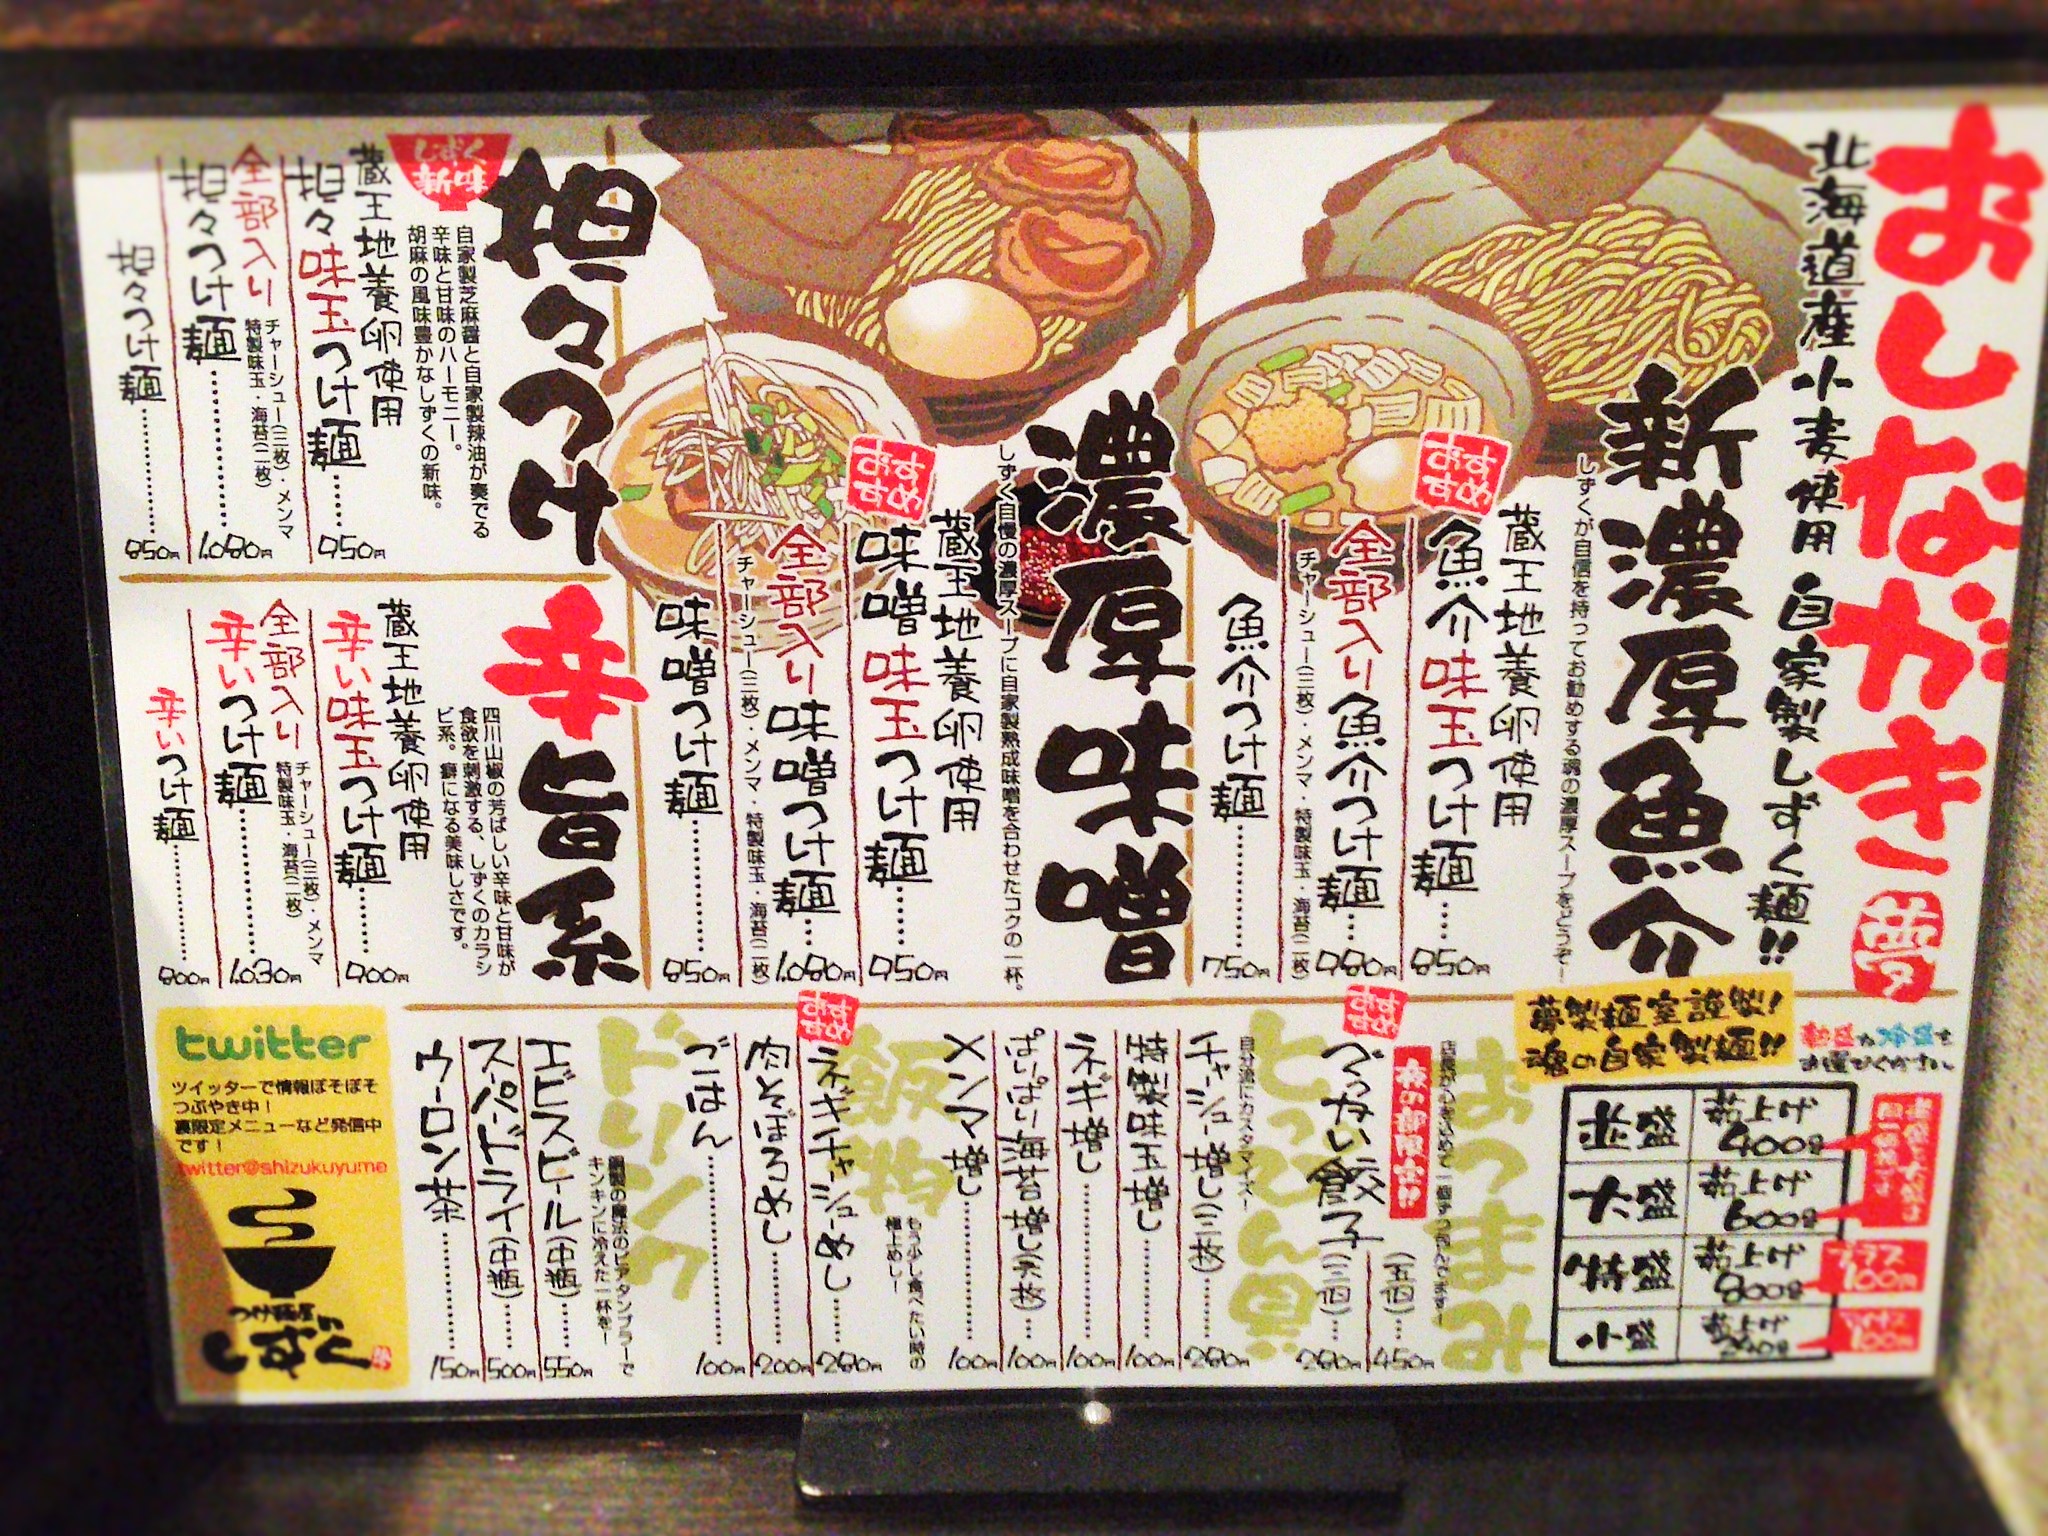 おしながき
夢
北海道産小麦使用 自家製しずく麺!!
新濃厚魚介
しずくが自信を持ってお勧めする魂の濃厚スープをどうぞー
蔵王地養卵使用
おすすめ
魚介味玉つけ麺……850円
全部入り魚介つけ麺……980円
チャーシュー(三枚)・メンマ・特製味玉・海苔(二枚)
魚介つけ麺……750円
濃厚味噌
しずく自慢の濃厚スープに自家製熟成味噌を合わせたコクの一杯。
蔵王地養卵使用
おすすめ
味噌味玉つけ麺……950円
全部入り味噌つけ麺……1,080円
チャーシュー(三枚)・メンマ・特製味玉・海苔(二枚)
味噌つけ麺……850円
担々つけ
しずく新味
自家製芝麻醤と自家製辣油が奏でる
辛味と甘味のハーモニー。
胡麻の風味豊かなしずくの新味。
蔵王地養卵使用
担々味玉つけ麺……950円
全部入り
担々つけ麺……1,080円
チャーシュー(三枚)・メンマ
特製味玉・海苔(二枚)
担々つけ麺……850円
辛旨系
四川山椒の芳ばしい辛味と甘味が
食欲を刺激する、しずくのカラシ
ビ系。癖になる美味しさです。
蔵王地養卵使用
辛い味玉つけ麺……900円
全部入り
辛いつけ麺……1,030円
チャーシュー(三枚)・メンマ
特製味玉・海苔(二枚)
辛いつけ麺……800円
夢製麺室謹製!
魂の自家製麺!!
熱盛か冷盛を
お選びください
並盛 茹上げ400g
大盛 茹上げ600g
特盛 茹上げ800g
プラス100円
小盛 茹上げ240g
マイナス100円
おつまみ
夜の部限定!!
おすすめ
でっかい餃子
(五個)…450円
(三個)…280円
とっぴん具
自分流にカスタマイズー
チャーシュー増し(三枚)……280円
特製味玉増し……100円
ネギ増し……100円
ぱりぱり海苔増し(六枚)…100円
メンマ増し……100円
飯物
もう少し食べたい時の
極上めしー
おすすめ
ネギチャーシューめし……280円
肉そぼろめし……200円
ごはん……100円
ドリンク
銅製の魔法のビアタンブラーで
キンキンに冷えた一杯をー
エビスビール(中瓶)……550円
スーパードライ(中瓶)……500円
ウーロン茶……150円
twitter
ツイッターで情報ぼそぼそ
つぶやき中!
裏限定メニューなど発信中
です!
twitter@shizukuyume
つけ麺屋
しずく